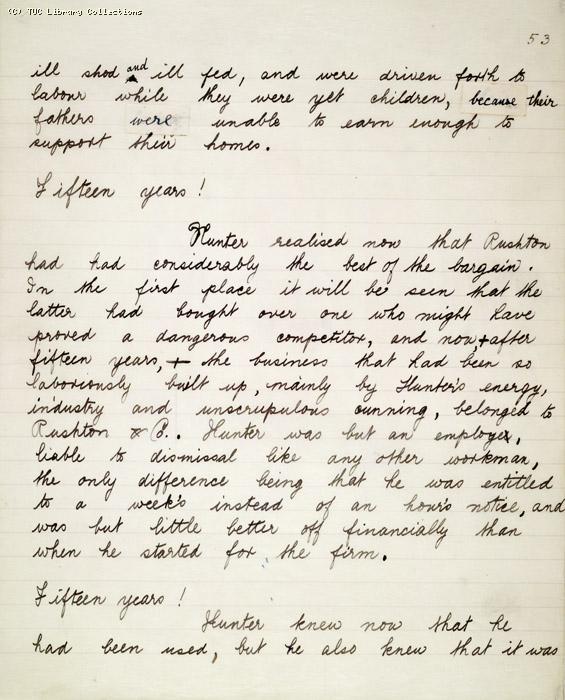 (C) TUC Library Collections
53
ill shod and ill fed, and were driven forth to
labour while they were yet children, because their
fathers were unable to earn enough to
support their homes.
Fifteen years!
Hunter realised now that Rushton
had had considerably the best of the bargain.
In the first place it will be seen that the
latter had bought over one who might have
proved a dangerous competitor, and now + after
fifteen years, + the business that had been so
laboriously built up, mainly by Hunter's energy,
industry and unscrupulous cunning, belonged to
Rushton & C°. Hunter was but an employee,
liable to dismissal like any other workman,
the only difference being that he was entitled
to a week's instead of an hour's notice, and
was but little better off financially than
when he started for the firm.
Fifteen years!
Hunter knew now that he
had been used, but he also knew that it was